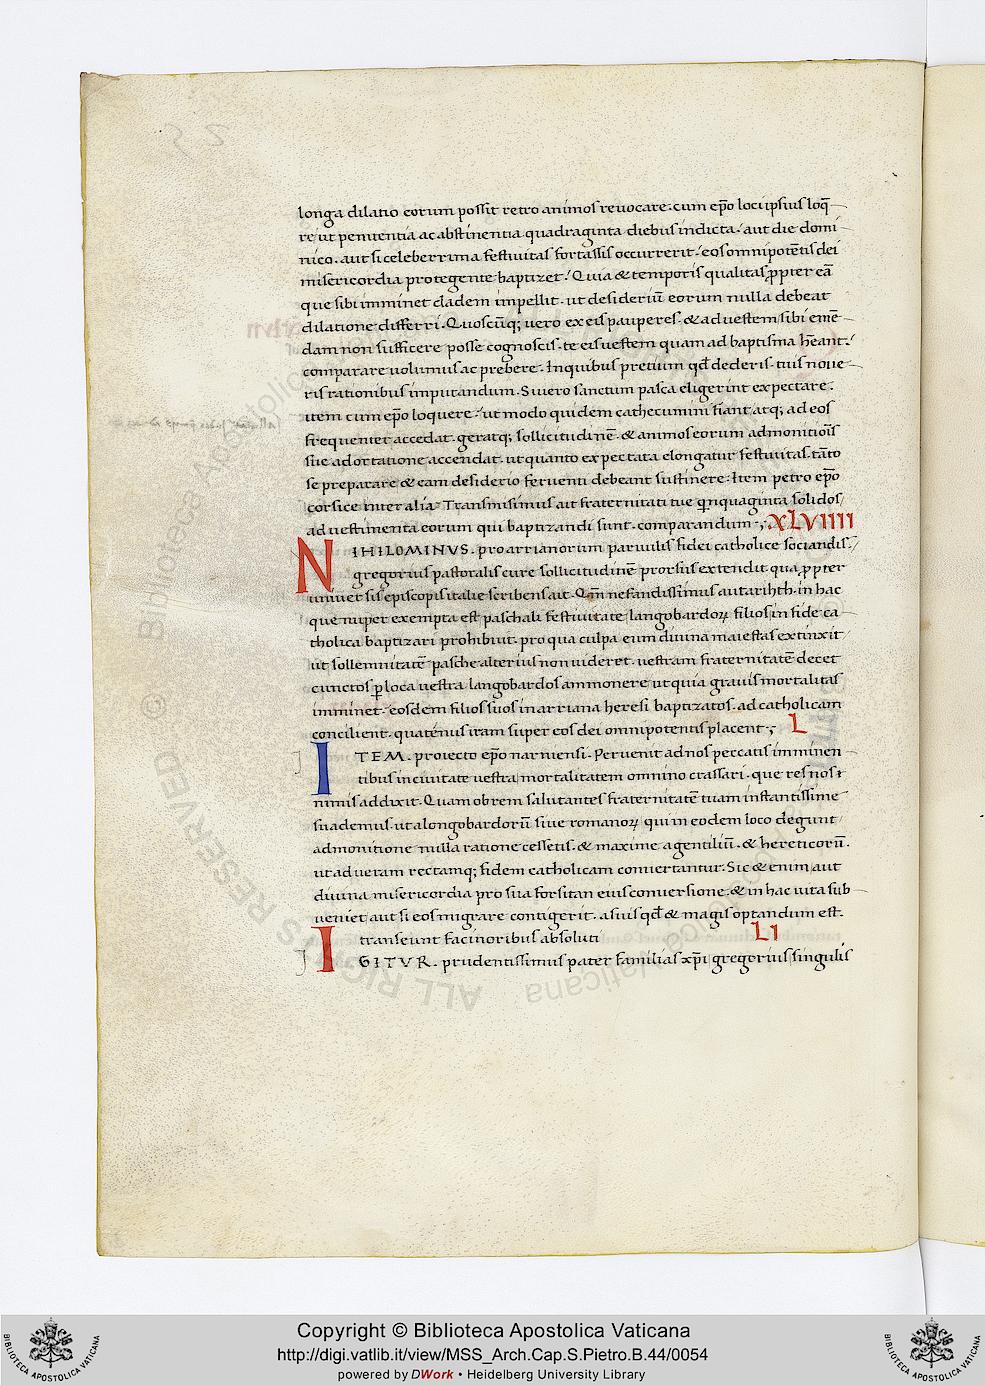 longa dilatio eorum possit retro animos reuocare: cum ep̄o loci ipsius loq̄
re ut penitentia ac abstinentia quadraginta diebus indicta. aut die domi
nico. aut si celeberrima festiuitas fortassis occurrerit. eos omnipotētis dei
misericordia protegente baptizet. Quia & temporis qualitas ꝓpter eā
que sibi imminet cladem impellit. ut desideriū eorum nulla debeat
dilatione differri. Quoscūq; uero ex eis pauperes. & ad uestem sibi emē
dam non sufficere posse cognoscis. te eis uestem quam ad baptisma heant.
comparare uolumus ac prebere. In quibus pretium qd̄ dederis. tuis noue
ris rationibus imputandum. Si uero sanctum pasca eligerint expectare.
item cum ep̄o loquere. ut modo quidem cathecumini fiant atq; ad eos
frequenter accedat. geratq; sollicitudinē. & animos eorum admonitiōis
sue adortatione accendat. ut quanto expectata elongatur festiuitas. tāto
se preparare & eam desiderio feruenti debeant sustinere. Item petro ep̄o
corsice inter alia. Transmisimus aut fraternitati tue quinquaginta solidos
ad uestimenta eorum qui baptizandi sunt. comparandum ; XLVIIII
NIHILOMINVS. pro arrianorum paruulis fidei catholice sociandis.
gregorius pastoralis cure sollicitudinē prorsus extendit qua ꝓpter
uniuersis episcopis italie scribens ait. Qm̄ nefandissimus autarihth. in hac
que nuper exempta est paschali festiuitate langobardoꝝ filios in fide ca
tholica baptizari prohibuit. pro qua culpa eum diuina maiestas extinxit
ut sollemnitatē pasche alterius non uideret. uestram fraternitatē decet
cunctos ꝑ loca uestra langobardos ammonere ut quia grauis mortalitas
imminet. eosdem filios suos in arriana heresi baptizatos. ad catholicam
concilient. quatenus iram super eos dei omnipotentis placent ; L
ITEM. proiecto ep̄o narniensi. Peruenit ad nos peccatis imminen
tibus in ciuitate uestra mortalitatem omnino crassari. que res nos
nimis addixit. Quam obrem salutantes fraternitatē tuam instantissime
suademus. ut a longobardorū siue romanoꝝ qui in eodem loco degunt
admonitione nulla ratione cessetis. & maxime a gentiliū. & hereticorū.
ut ad ueram rectamq; fidem catholicam conuertantur. Sic & enim aut
diuina misericordia pro sua forsitan eius conuersione. & in hac uita sub
ueniet aut si eos migrare contigerit. a suis qd̄ & magis optandum est.
transeunt facinoribus absoluti LI
IGITVR. prudentissimus pater familias xp̄i gregorius singulis
Copyright © Biblioteca Apostolica Vaticana
http://digi.vatlib.it/view/MSS_Arch.Cap.S.Pietro.B.44/0054
powered by DWork • Heidelberg University Library